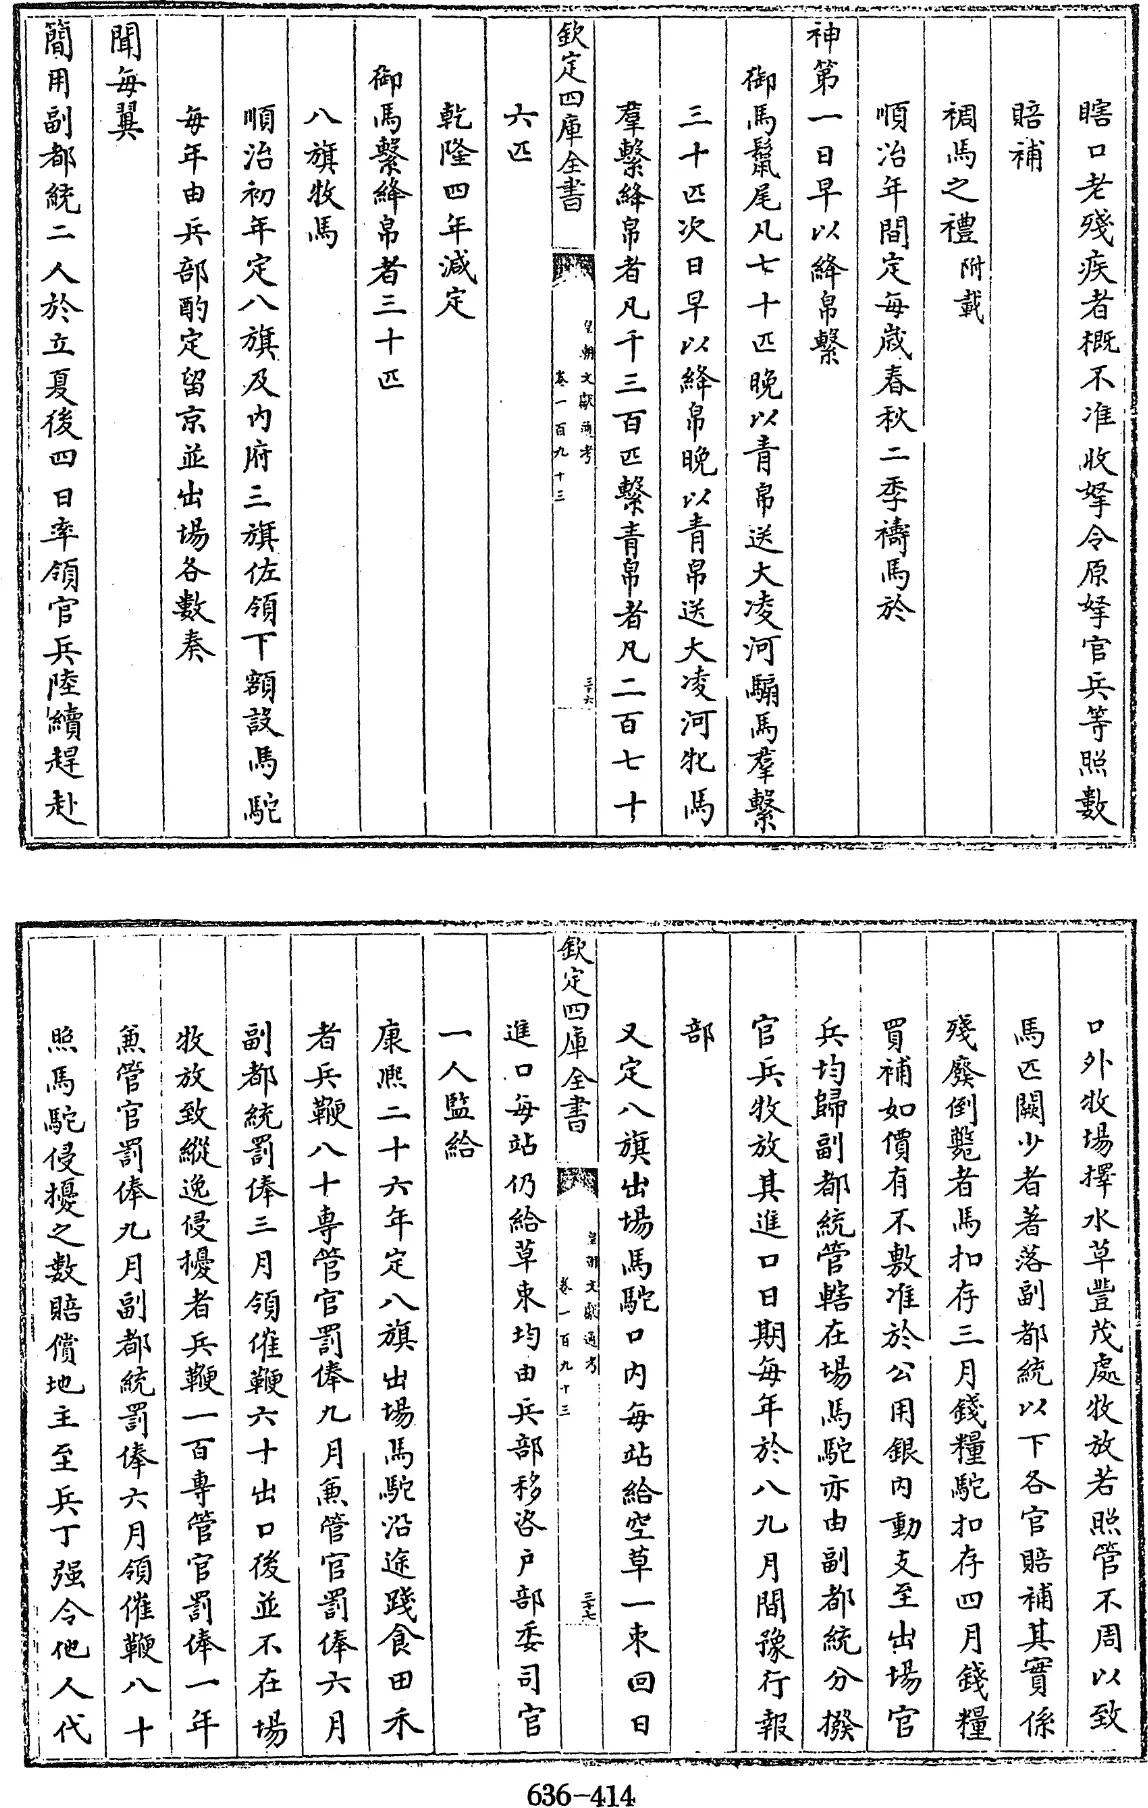 瞎口老殘疾者概不准收孳令原孳官兵等照數
賠補
禂馬之禮附載
順治年間定每歲春秋二季禱馬於
神第一日早以絳帛繫
御馬鬛尾凡七十匹晚以青帛送大凌河騸馬羣繫
三十匹次日早以絳帛晚以青帛送大凌河牝馬
羣繫絳帛者凡千三百匹繫青帛者凡二百七十
欽定四庫全書
皇朝文獻通考
卷一百九十三
三十六
六匹
乾隆四年減定
御馬繫絳帛者三十匹
八旗牧馬
順治初年定八旗及内府三旗佐領下額設馬駝
每年由兵部酌定留京並出場各數奏
聞每翼
簡用副都統二人於立夏後四日率領官兵陸續趕赴
口外牧場擇水草豐茂處牧放若照管不周以致
馬匹闕少者著落副都統以下各官賠補其實係
殘廢倒斃者馬扣存三月錢糧駝扣存四月錢糧
買補如價有不敷准於公用銀内動支至出場官
兵均歸副都統管轄在場馬駝亦由副都統分撥
官兵牧放其進口日期每年於八九月間豫行報
部
又定八旗出場馬駝口内每站給空草一束回日
欽定四庫全書
皇朝文獻通考
卷一百九十三
三十七
進口每站仍給草束均由兵部移咨户部委司官
一人監給
康熙二十六年定八旗出場馬駝沿途踐食田禾
者兵鞭八十專管官罰俸九月兼管官罰俸六月
副都統罰俸三月領催鞭六十出口後並不在場
牧放致縱逸侵擾者兵鞭一百專管官罰俸一年
兼管官罰俸九月副都統罰俸六月領催鞭八十
照馬駝侵擾之數賠償地主至兵丁强令他人代
636-414